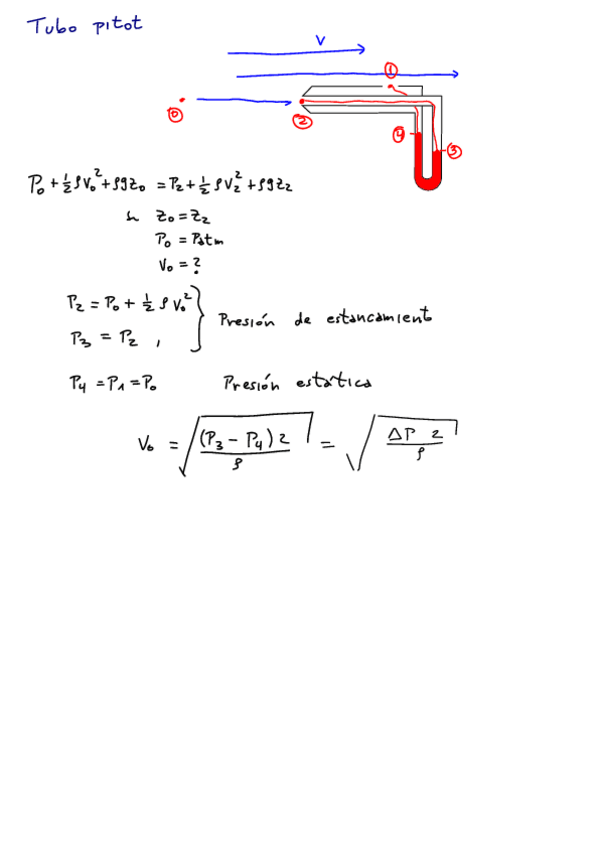 Tubo pitot
V
①
⓪
②
④
③
P₀ + ½ ρV₀² + ρgz₀ = P₂ + ½ ρV₂² + ρgz₂
si z₀ = z₂
P₀ = Patm
V₀ = ?
P₂ = P₀ + ½ ρ V₀²
Presión de estancamiento
P₃ = P₂ ,
P₄ = P₁ = P₀ Presión estática
V₀ = √((P₃ − P₄) 2 / ρ) = √(ΔP 2 / ρ)